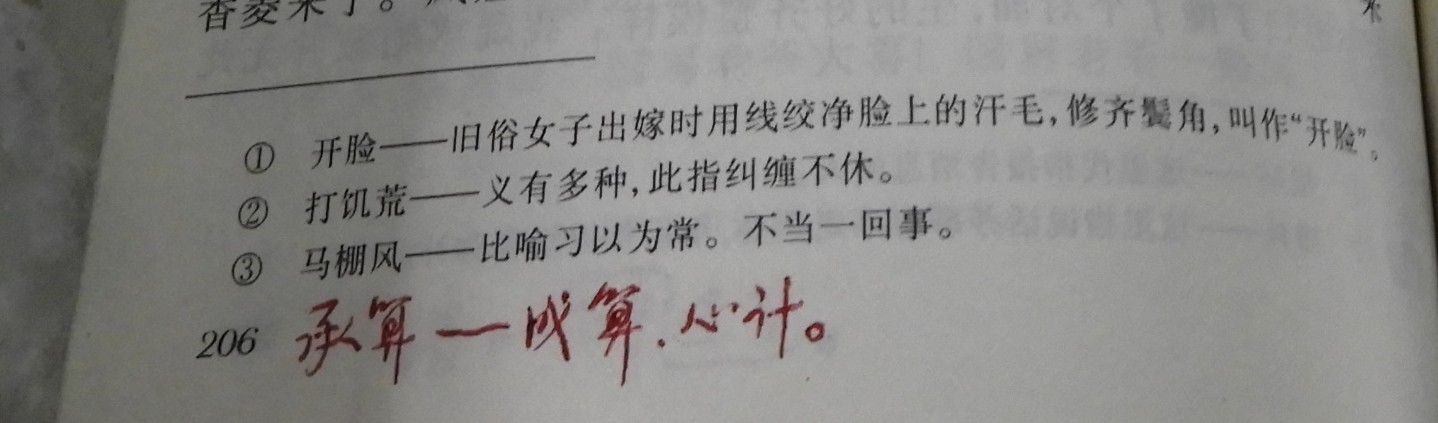 香菱来了。
① 开脸——旧俗女子出嫁时用线绞净脸上的汗毛,修齐鬓角,叫作“开脸”。
② 打饥荒——义有多种,此指纠缠不休。
③ 马棚风——比喻习以为常。不当一回事。
206 承算—成算.心计。